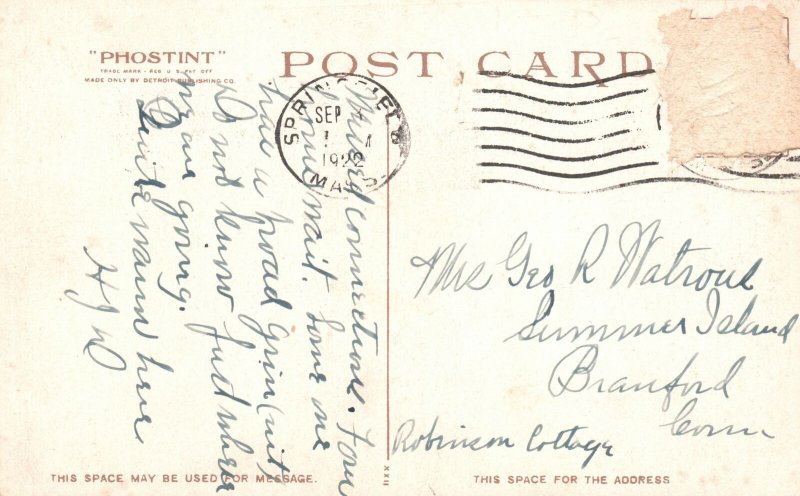 "PHOSTINT"
TRADE MARK - REG U S PAT OFF
MADE ONLY BY DETROIT PUBLISHING CO.
POST CARD
SPRINGFIELD
SEP
1922
MASS.
Missed connections. Four
hour wait. Some one
has a road grin (nit)
Do not know just where
we are going.
Quite warm here
H J W
Mrs Geo R Watrous
Summer Island
Branford
Conn
Robinson Cottage
XXII
THIS SPACE MAY BE USED FOR MESSAGE.
THIS SPACE FOR THE ADDRESS